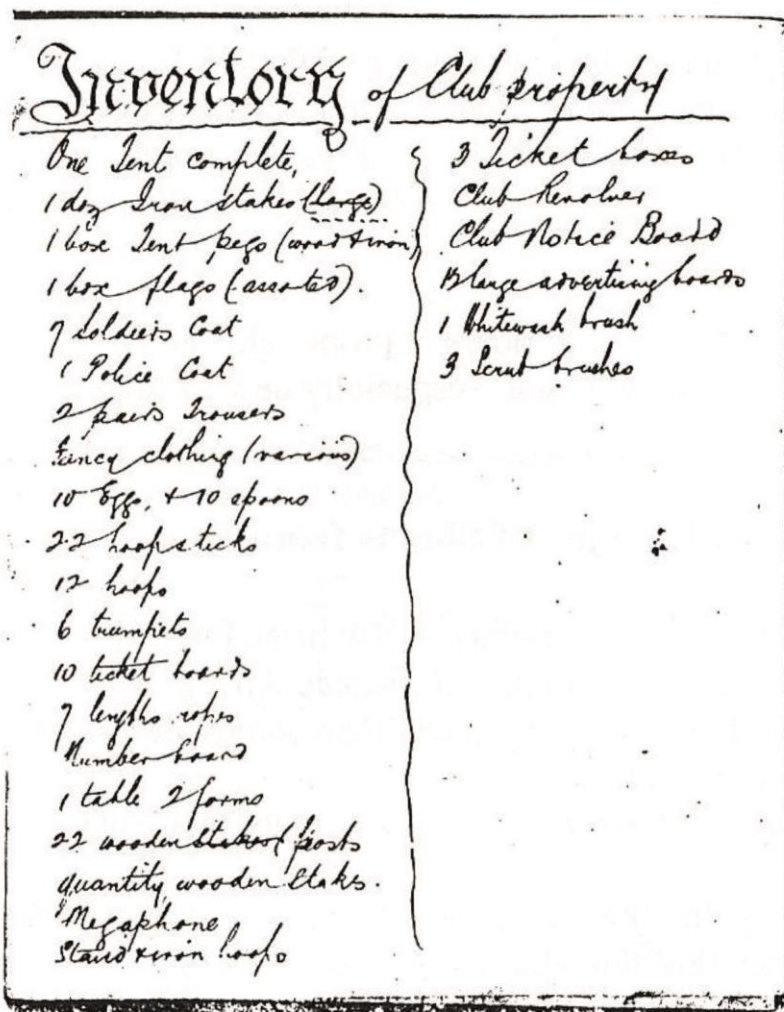 Inventory of Club property
One Tent complete,
1 doz Iron stakes (large)
1 box Tent pegs (wood & iron)
1 box flags (assorted).
7 Soldiers Coat
1 Police Coat
2 pairs Trousers
Fancy clothing (various)
10 Eggs, & 10 spoons
22 hoopsticks
12 hoops
6 trumpets
10 ticket boards
7 lengths ropes
Number board
1 table 2 forms
22 wooden posts
quantity wooden stakes.
Megaphone
Stand & iron hoops
3 Ticket boxes
Club Revolver
Club Notice Board
large advertising boards
1 Whitewash brush
3 Scrub brushes